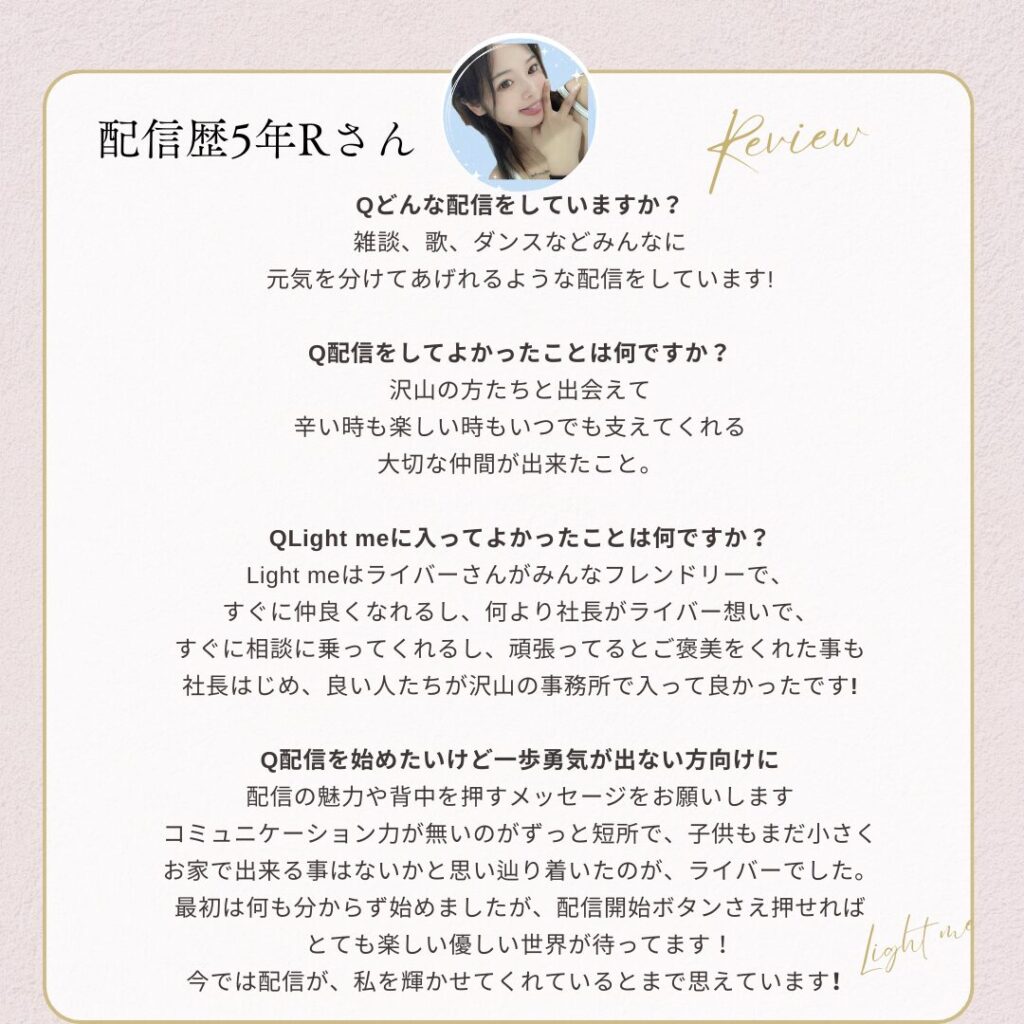 配信歴5年Rさん
Review
Qどんな配信をしていますか？
雑談、歌、ダンスなどみんなに
元気を分けてあげれるような配信をしています!
Q配信をしてよかったことは何ですか？
沢山の方たちと出会えて
辛い時も楽しい時もいつでも支えてくれる
大切な仲間が出来たこと。
QLight meに入ってよかったことは何ですか？
Light meはライバーさんがみんなフレンドリーで、
すぐに仲良くなれるし、何より社長がライバー想いで、
すぐに相談に乗ってくれるし、頑張ってるとご褒美をくれた事も
社長はじめ、良い人たちが沢山の事務所で入って良かったです!
Q配信を始めたいけど一歩勇気が出ない方向けに
配信の魅力や背中を押すメッセージをお願いします
コミュニケーション力が無いのがずっと短所で、子供もまだ小さく
お家で出来る事はないかと思い辿り着いたのが、ライバーでした。
最初は何も分からず始めましたが、配信開始ボタンさえ押せれば
とても楽しい優しい世界が待ってます！
今では配信が、私を輝かせてくれているとまで思えています!
Light me